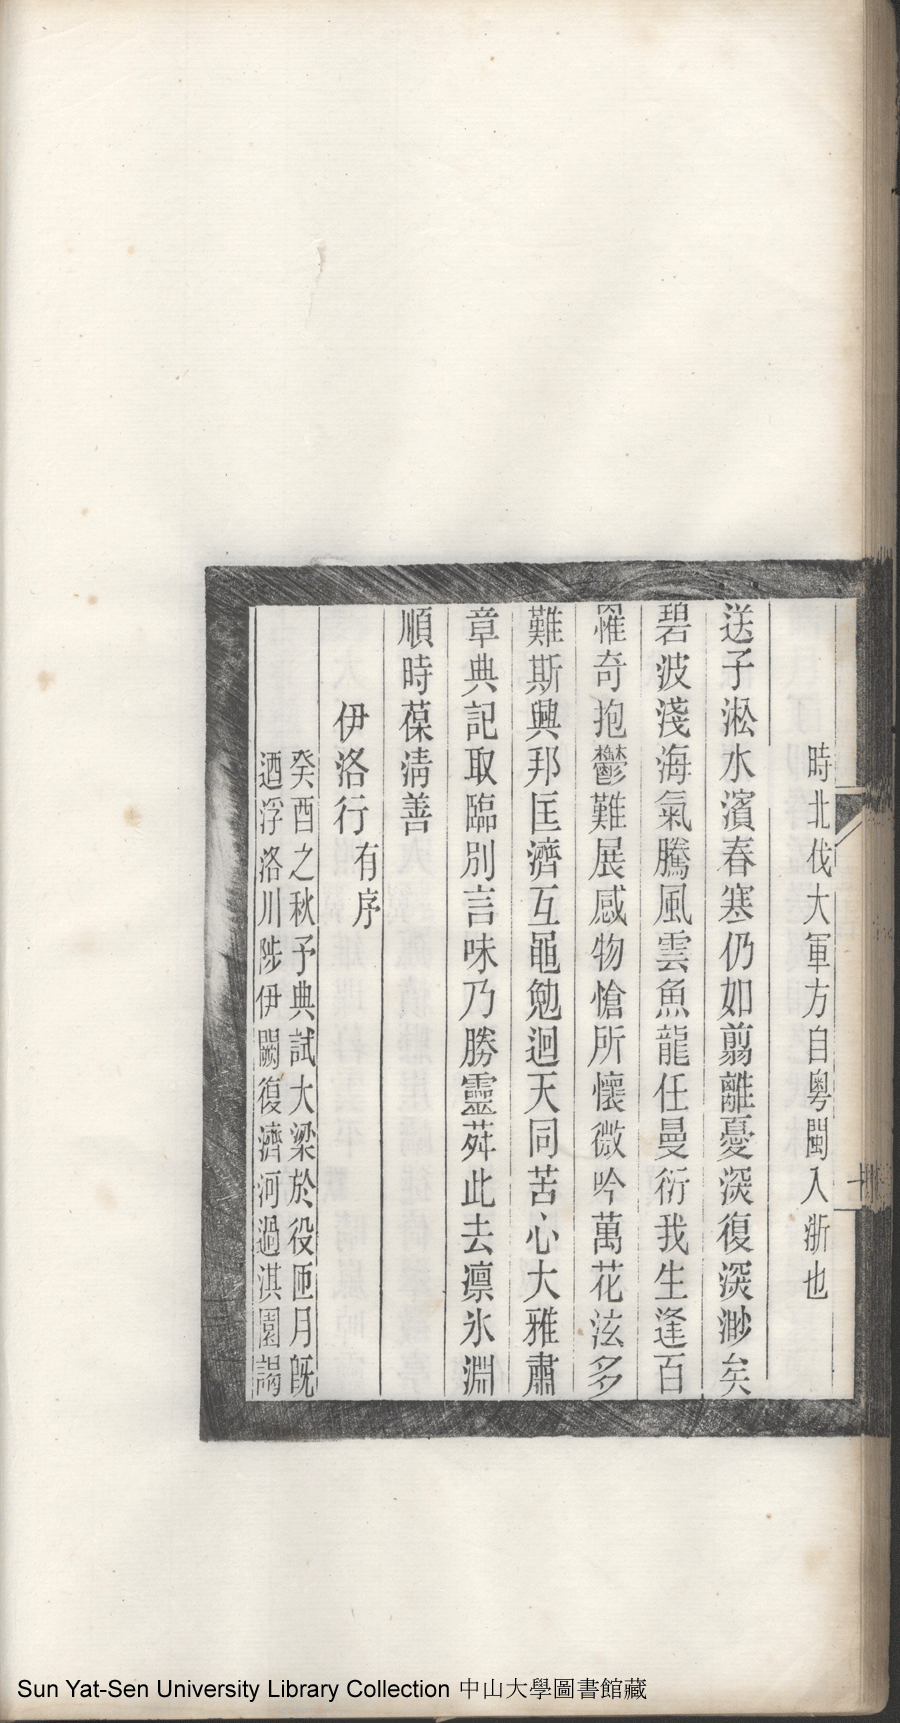 時北伐大軍方自粵閩入浙也
送子淞水濱春寒仍如翦離憂深復深渺矣
碧波淺海氣騰風雲魚龍任曼衍我生逢百
罹奇抱鬱難展感物愴所懷微吟萬花泫多
難斯興邦匡濟互黽勉迴天同苦心大雅肅
章典記取臨別言味乃勝靈荈此去凛氷淵
順時葆清善
伊洛行有序
癸酉之秋予典試大梁於役匝月旣
迺浮洛川陟伊闕復濟河過淇園謁
十
Sun Yat-Sen University Library Collection 中山大學圖書館藏